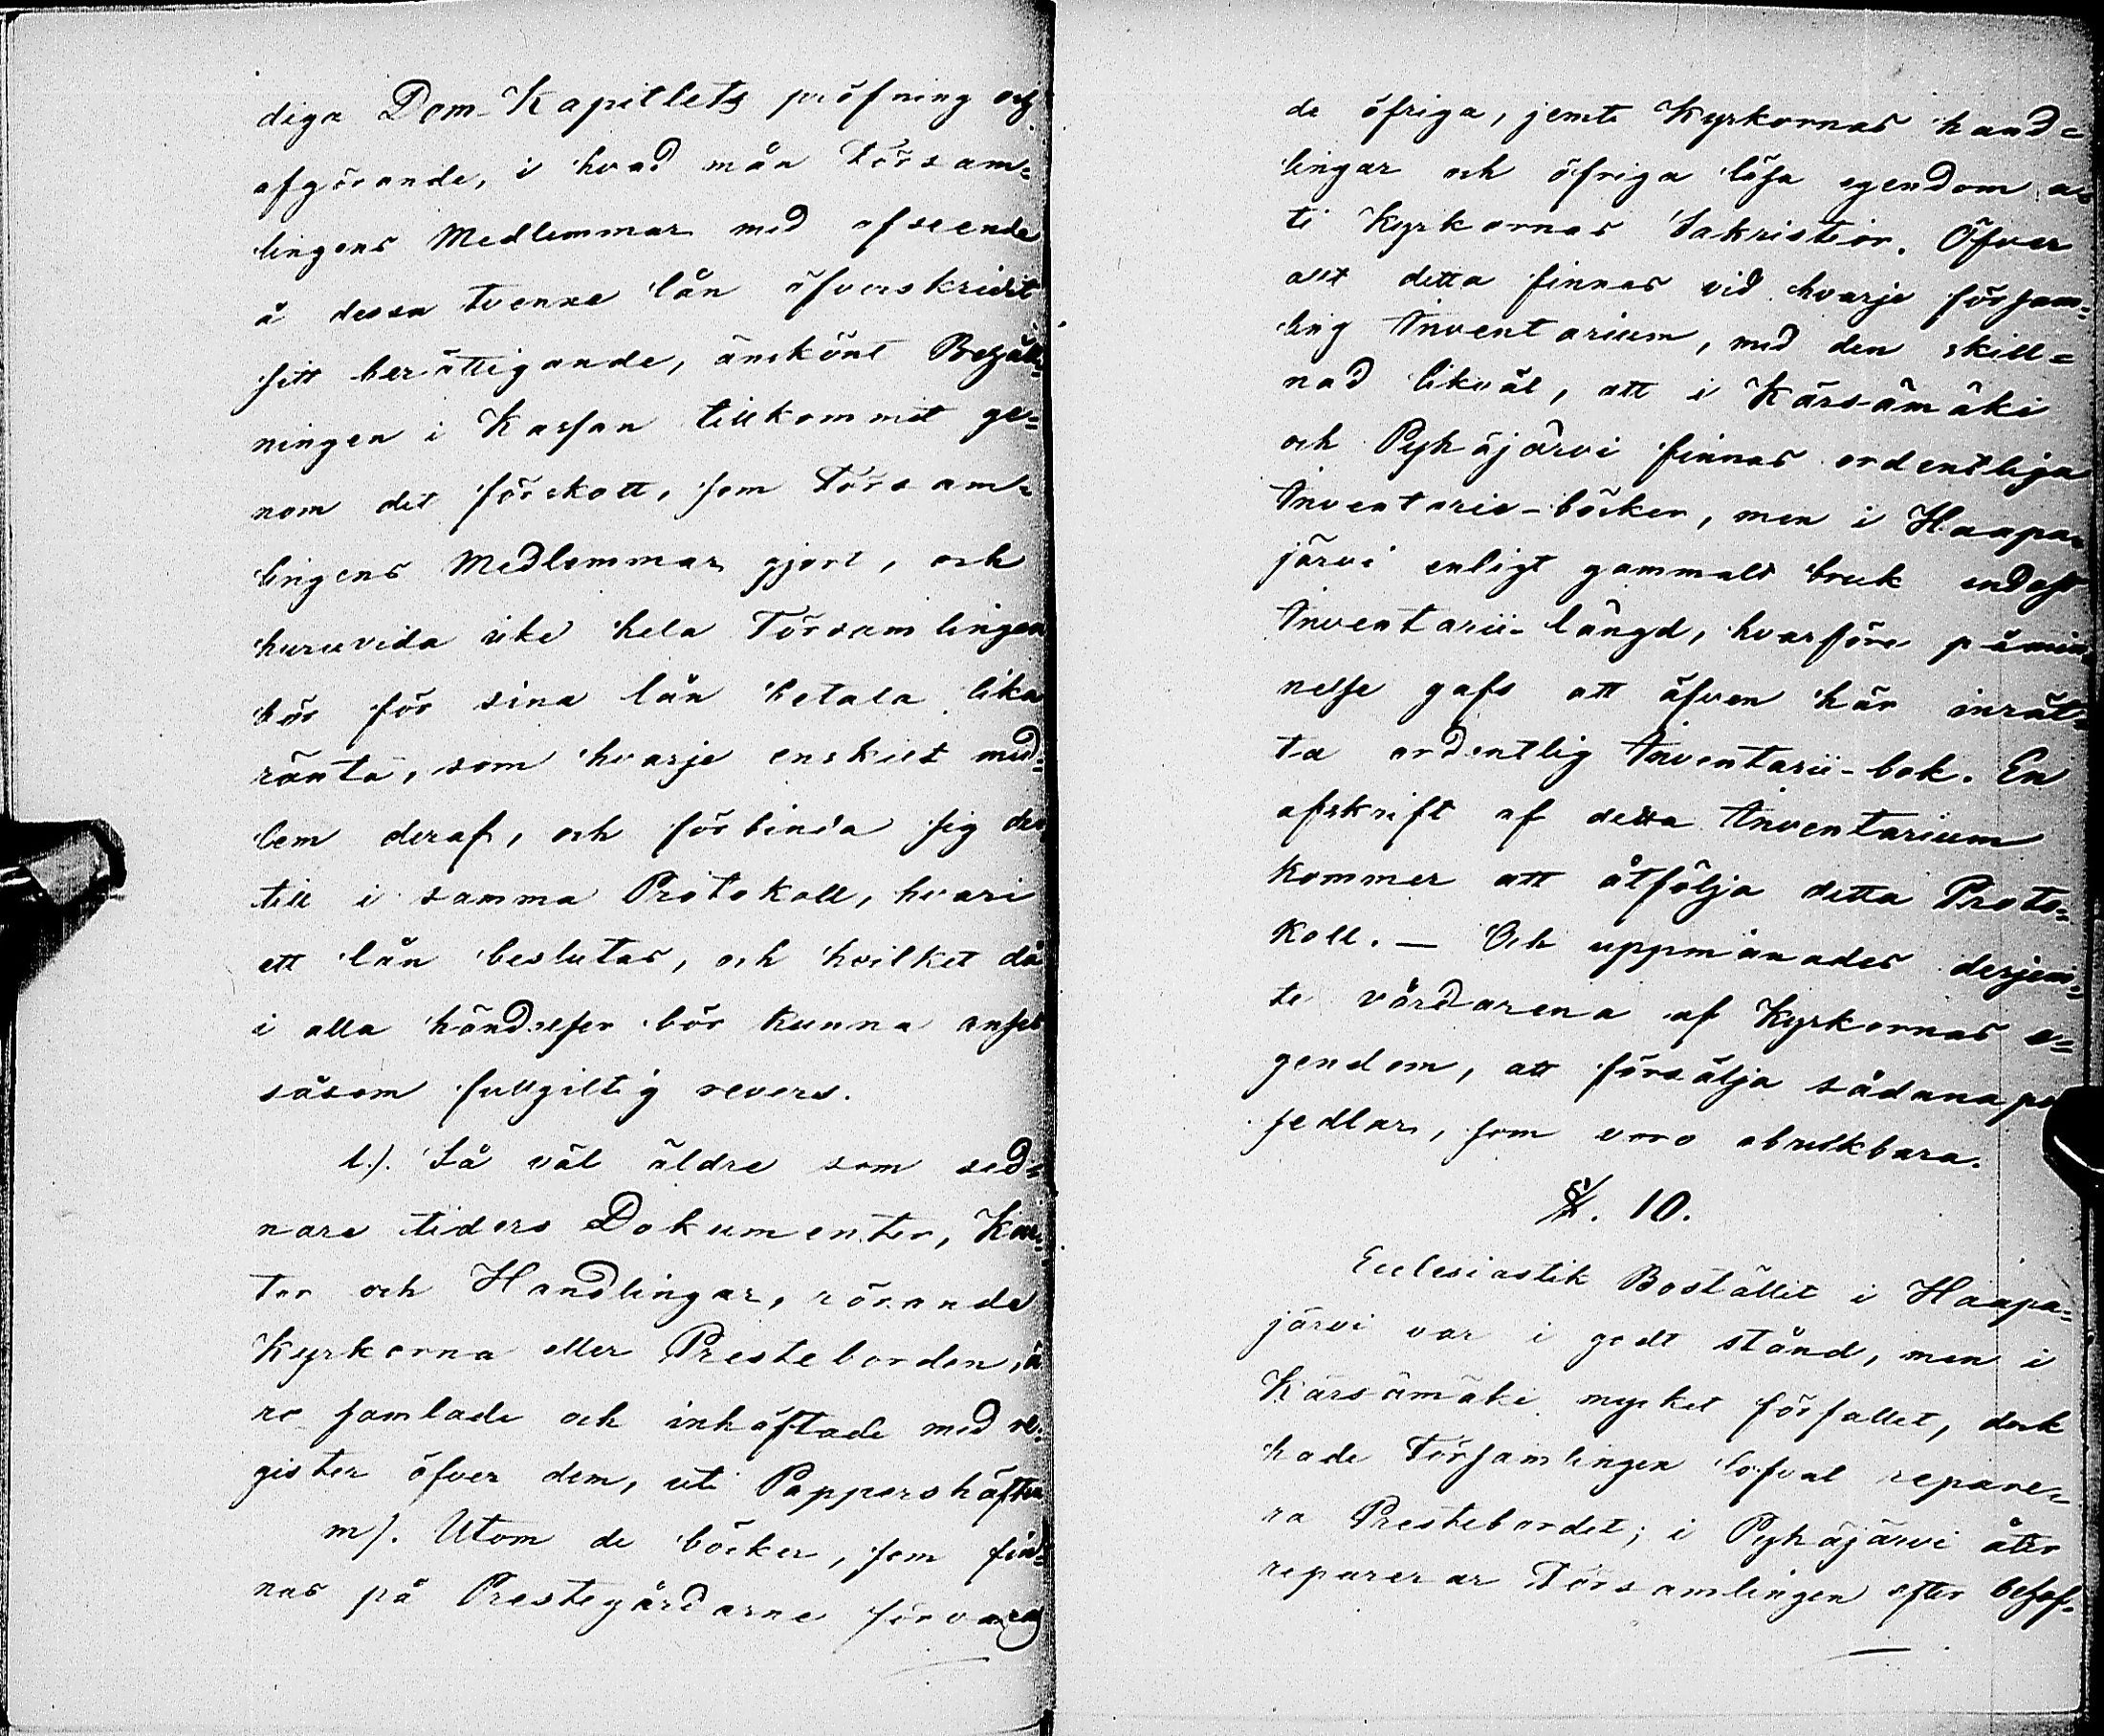 diga Dom-Kapitlets pröfning och
afgörande, i hvad mån Försam=
lingens Medlemmar med afseende
å dessa tvenne lån öfverskridit
sitt berättigande, änskönt
ningen i Kassan tillkommit ge=
nom det förskott, som Försam=
lingens Medlemmar gjort, och
huruvida icke hela Församlingen
bör för sina lån betala lika
ränta, som hvarje enskilt med=
lem deraf, och förbinda sig der
till i samma Protokoll, hvari
ett lån beslutas, och hvilket då
i alla händelser bör kunna anses
såsom fullgiltig revers.
l.). Så väl äldre som sed=
nare tiders Dokumenter, Kar=
tor och Handlingar, rörande
Kyrkorna eller Presteborden, ä
ro samlade och inhäftade med re=
gister öfver dem, uti Pappershäften
m). Utom de böcker, som fin=
nas på Prestegårdarne förvaras
de öfriga, jemte Kyrkornas hand=
lingar och öfriga lösa egendom
ti Kyrkornas Sakristior. Öfver
allt detta finnes vid hvarje försam=
ling Inventarium, med den skill=
nad likväl, att i Kärsämäki
och Pyhäjärvi finnas ordentliga
Inventarie-böcker, men i Haapa=
järvi enligt gammalt bruk endast
Inventarii-längd, hvarföre påmin=
nelse gafs att äfven här inrät=
ta ordentlig Inventarii-bok. En
afskrift af detta Inventarium
kommer att åtfölja detta Proto=
koll. — Och uppmanades derjem=
te vårdarena af Kyrkornas e=
gendom, att försälja sådana per
sedlar, som voro obrukbara.
§. 10.
Ecclesiastik Bostället i Haapa=
järvi var i godt stånd, men i
Kärsämäki mycket förfallet, dock
hade Församlingen lofvat repare=
ra Prestebordet; i Pyhäjärvi åter
reparerar Församlingen efter behof.